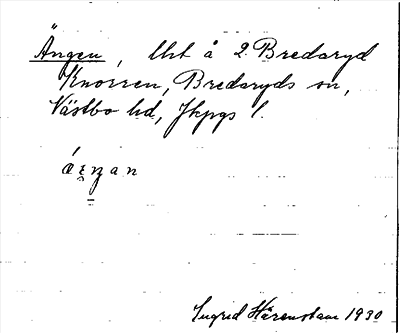 Ängen, lht å 2 Bredaryd
Knorren, Bredaryds sn,
Västbo hd, Jkpgs l.
Ingrid Härenstam 1930